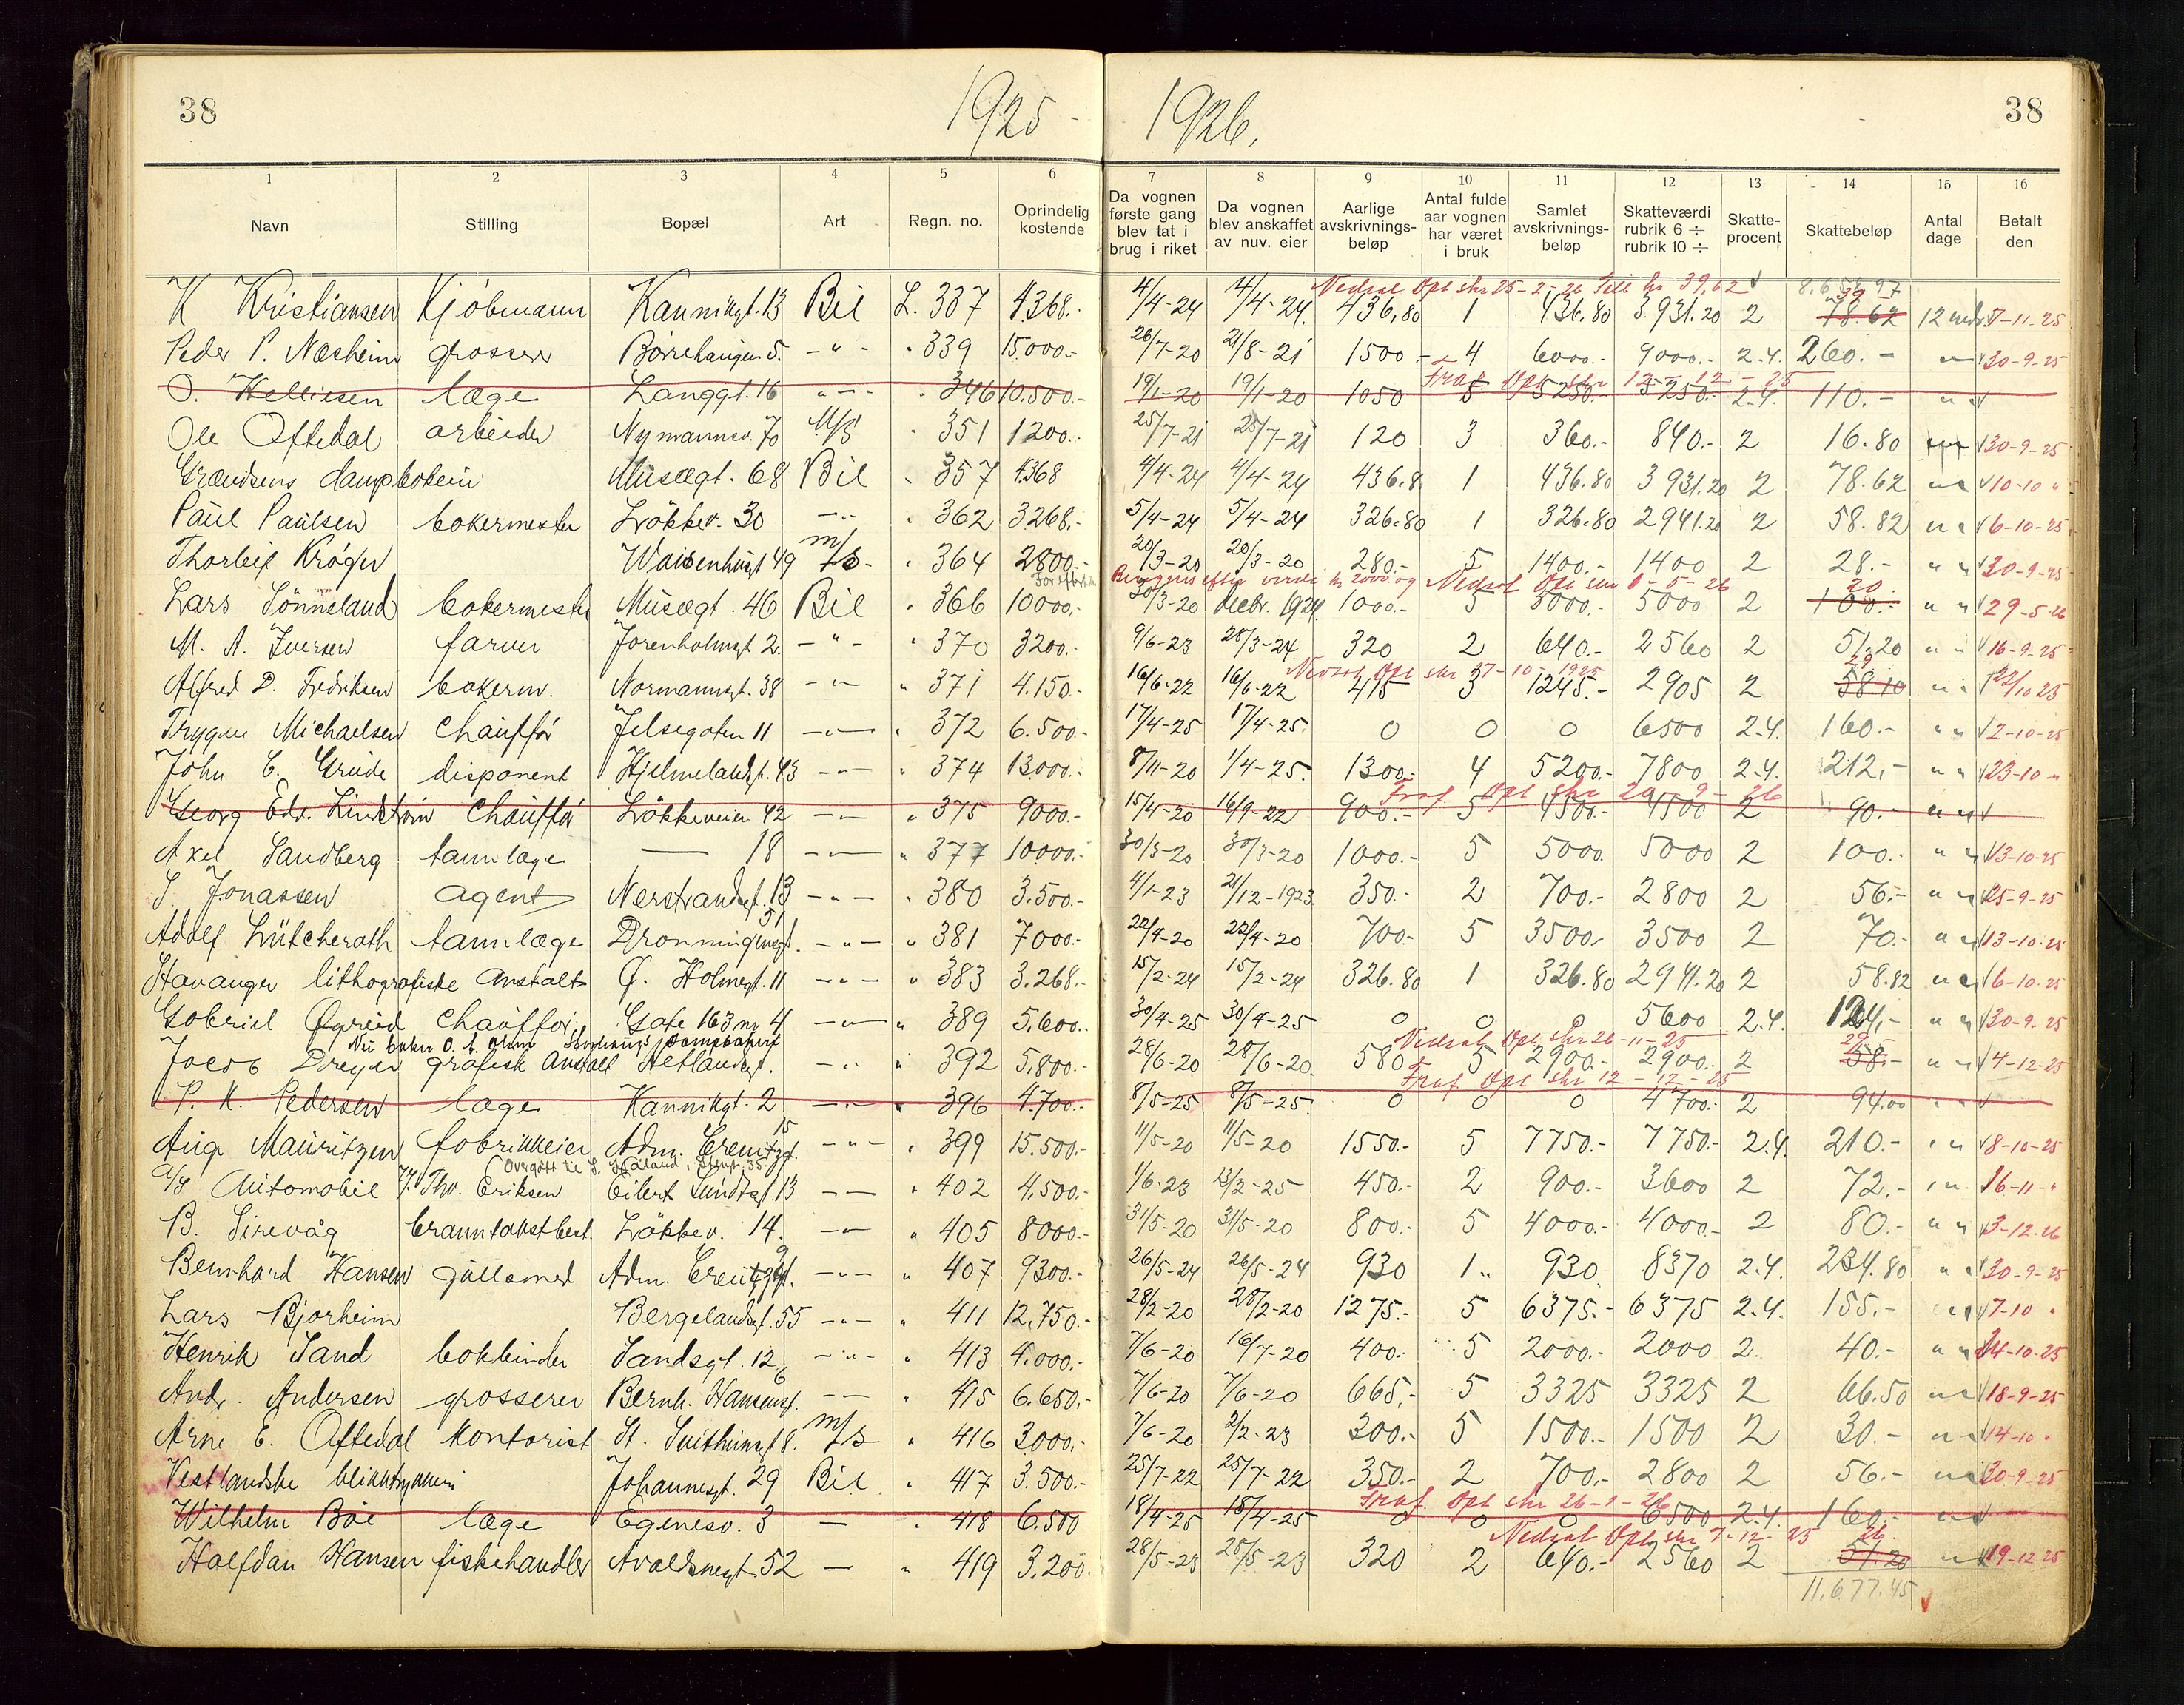 38 1925 - 1926. 38
1 2 3 4 5 6 7 8 9 10 11 12 13 14 15 16
Navn Stilling Bopæl Art Regn. no. Oprindelig kostende Da vognen første gang blev tat i brug i riket Da vognen blev anskaffet av nuv. eier Aarlige avskrivnings-beløp Antal fulde aar vognen har været i bruk Samlet avskrivnings-beløp Skatteværdi rubrik 6 ÷ rubrik 10 ÷ Skatte-procent Skattebeløp Antal dage Betalt den
Nedsat Opl skr 25-2-26 till kr 39,62 8.658.97
K Kristiansen Kjöbmann Kannikgt. 13 Bil L. 337 4368.- 4/4-24 4/4-24 436,80 1 436.80 3.931.20 2 78.62 39 12 mdr 7-11-25
Peder P. Næsheim grosserer Börrehaugen 5. -"- " 339 15.000.- 26/7-20 21/8-21 1500.- 4 6000.- 9000.- 2.4. 260.- " 30-9-25
Fraf. Opl. skr 12-12-25
O. Helliesen læge Langgt. 16 "-"- " 346 10.500.- 19/1-20 19/1-20 1050 5 5250.- 5250.- 2.4. 110.- " "
Ole Oftedal arbeider Nymannsv. 70 M/S " 351 1200.- 25/7-21 25/7-21 120 3 360.- 840.- 2 16.80 30-9-25
Grændsens dampbokeri Müsægt. 68 Bil " 357 4368 4/4-24 4/4-24 436.8 1 436.80 3931.20 2 78.62 " " 10-10 "
Paul Paulsen bokermester Lökkev. 30 -"- " 362 3268.- 5/4-24 5/4-24 326.80 1 326.80 2941.20 2 58.82 " " 6-10-25
Thorleif Kröger Waisenhusgt 49 m/s - " 364 2800.- 20/3-20 20/3-20 280.- 5 1400.- 1400 2 28.- " " 30-9-25
Beregnes efter værdi kr 2000 og Nedsat Opl skr 8-5-26
Lars Sönneland bokermester Müsægt. 46 Bil " 366 10000.- 30/3-20 decbr. 1924 1000.- 5 5000.- 5000 2 100.- 20 " " 29-5-26
M. A. Iversen farver Jorenholmgt 2. -"- " 370 3200.- 9/6-23 28/3-24 320 2 640.- 2560 2 51.20 " " 16-9-25
Nedsat Opl skr 27-10-1925
Alfred D. Fredriksen bokerm. Normannsgt. 38 -"- " 371 4.150.- 16/6-22 16/6-22 415 3 1245.- 2905 2 58.10 29 " " 22/10 25
Trygve Michaelsen Chaufför Jelsegaten 11 -"- " 372 6.500.- 17/4-25 17/4-25. 0 0 0 6500 2.4. 160.- " " 2-10-25
John E. Grude disponent Hjelmelandsgt. 43 -"- " 374 13.000.- 8/11-20 1/4-25. 1300.- 4 5200.- 7800 2.4. 212,- " " 23-10 "
Fraf Opl skr 20-9-26
Georg Edv. Lindström Chaufför Lökkeveien 42 -"- " 375 9000.- 15/4-20 16/9-22 900.- 5 4500.- 4500 2 90.- " "
Axel Sandberg tannlæge — 18 -"- " 377 10000.- 30/3-20 30/3-20 1000.- 5 5000. 5000 2 100.- " " 13-10-25
S. Jonassen agent Nerstrandsgt. 13 -"- " 380 3.500.- 4/1-23 21/12-1923 350.- 2 700.- 2800 2 56.- " " 25-9-25
Adolf Lütcherath tannlæge Dronningensgt. 51 -"- " 381 7000.- 22/4-20 22/4-20 700.- 5 3500.- 3500 2 70.- " " 13-10-25
Stavanger lithografiske Anstalt Ø. Holmegt. 11 -"- " 383 3.268.- 15/2-24 15/2-24 326.80 1 326.80 2941.20 2 58.82 " " 6-10-25
Gabriel Øgreid Chaufför Gate 163 nr 4 -"- " 389 5.600.- 30/4-25 30/4-25 0 0 0 5600 2.4. 124.- " " 30-9-25
Nedsat Opl. skr 26-11-25
Jacob Dreyer grafisk Anstalt Hetlandsgt. -"- " 392 5.800.- 28/6-20 28/6-20 580 5 2900.- 2900.- 2 58.- 29 " " 4-12-25
Fraf. Opl skr 12-12-25
P. K. Pedersen læge Kannikgt. 2 -"- " 396 4.700.- 8/5-25 8/5-25. 0 0 0 4700.- 2 94.00 " "
Aug. Mauritzen fabrikkeier Adm. Creutzgt. 15 -"- " 399 15.500.- 11/5-20 11/5-20 1550.- 5 7750.- 7750.- 2.4. 210.- " " 8-10-25
Overgått til
A/S Automobil J. Thv. Eriksen Eilert Sundtsgt. 13 -"- " 402 4.500.- 1/6-23 23/2-25 450.- 2 900.- 3600 2 72.- " " 16-11 "
B. Sirevåg Lökkev. 14. -"- " 405 8000.- 31/5-20 31/5-20 800.- 5 4000.- 4000.- 2 80.- " " 3-12-26
Bernhard Hansen gullsmed Adm. Creutzgt. 9 -"- " 407 9300.- 26/5-24 26/5-24 930 1 " 930 8370 2.4. 234.80 " " 30-9-25
Lars Bjorheim Bergelandsgt. 55 -"- " 411 12.750.- 28/2-20 28/2-20 1275.- 5 6375.- 6375 2.4. 155.- " " 7-10 "
Henrik Sand bokbinder Sandsgt. 12 -"- " 413 4.000.- 7/6-20 16/7-20 400.- 5 2000.- 2000 2. 40.- " " 14-10-25
Andr. Andersen grosserer Bernh. Hansensgt. 6 -"- " 415 6.650.- 7/6-20 7/6-20 665.- 5 3325 3325 2 66.50 " " 18-9-25
Arne E. Oftedal Kontorist St. Svithunsgt 8. m/s " 416 3000.- 7/6-20 2/2-23 300.- 5 1500.- 1500 2 30.- " " 14-10 "
Vestlandske blikktrykkeri Johannesgt. 29 Bil " 417 3.500.- 25/7-22 25/7-22 350.- 2 700.- 2800 2 56.- " " 30-9-25
Fraf Opl skr 26-1-26
Wilhelm Böe læge Egenesv. 3 — " 418 6.500 18/4-25 18/4-25 0 0 0 6500 2.4. 160.- " "
Nedsat Opl. skr 7-12-25
Halfdan Hansen fiskehandler Avaldsnesgt. 52 — " 419 3.200.- 28/5-23 28/5-23 320 2 640.- 2560 2 51.20 26. " " 19-12-25
11.677.45